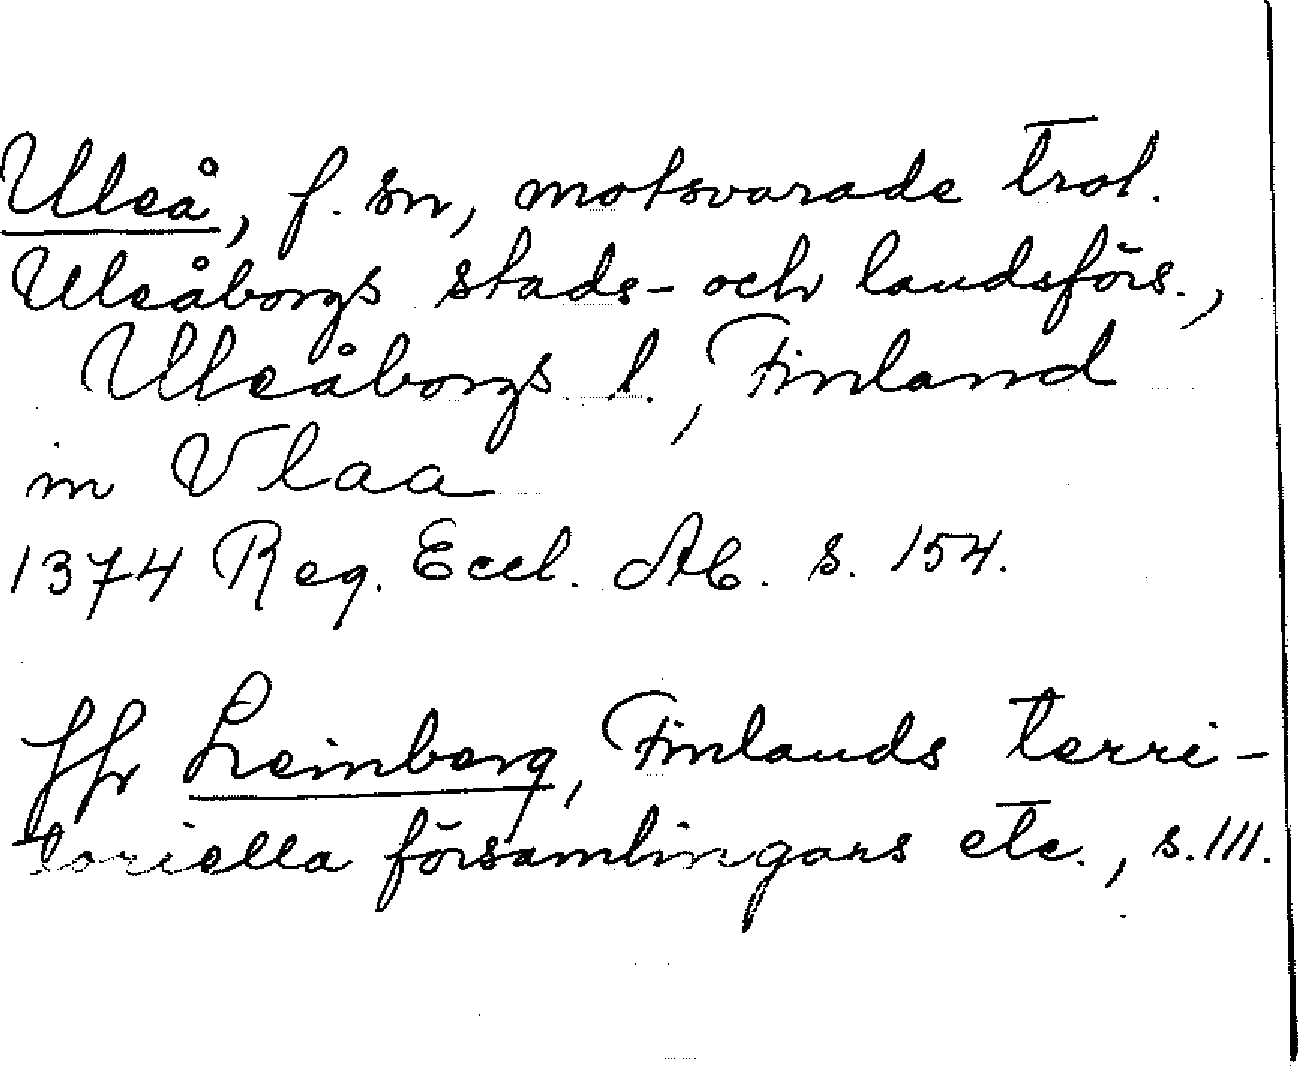 Uleå, f. sn, motsvarade trol.
Uleåborgs stads- och landsförs.,
Uleåborgs l., Finland
in Vlaa
1374 Reg. Eccl. Ab. s. 154.
Jfr Leinberg, Finlands terri-
toriella församlingars etc., s. 111.